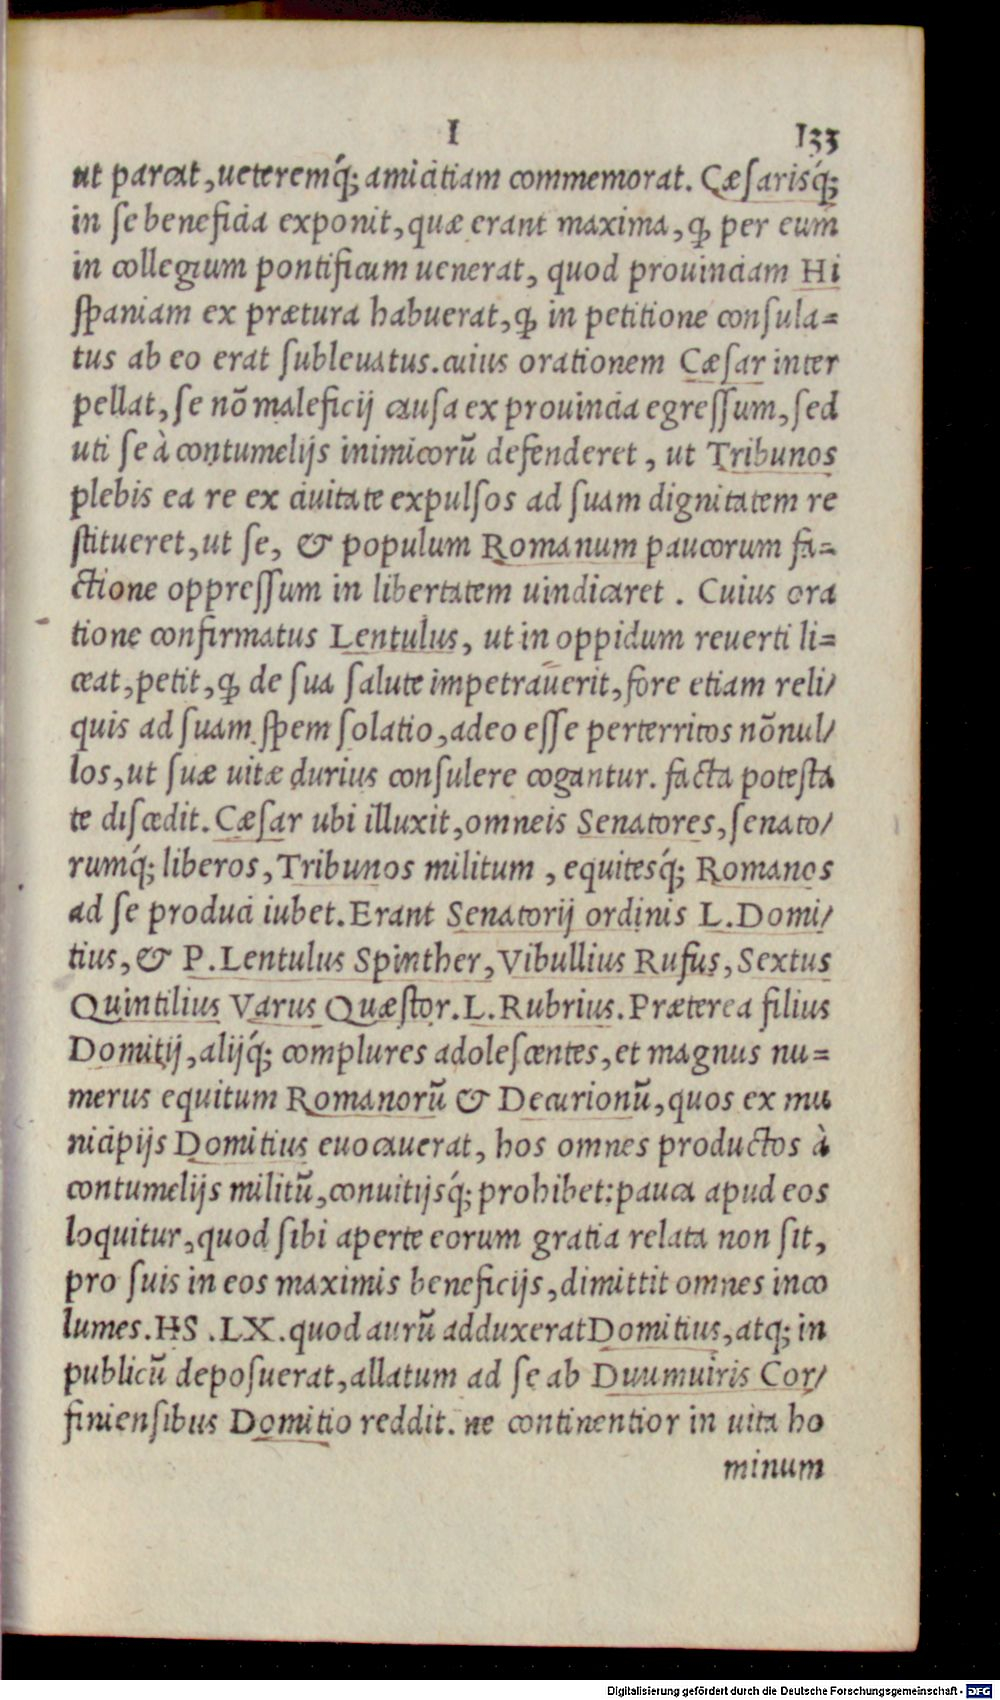 I 133
ut parcat, ueteremq́; amicitiam commemorat. Cæsarisq́;
in se beneficia exponit, quæ erant maxima, ꝙ per eum
in collegium pontificum uenerat, quod prouinciam Hi
spaniam ex prætura habuerat, ꝙ in petitione consula=
tus ab eo erat subleuatus. cuius orationem Cæsar inter
pellat, se nō maleficij causa ex prouincia egressum, sed
uti se à contumelijs inimicorū defenderet, ut Tribunos
plebis ea re ex ciuitate expulsos ad suam dignitatem re
stitueret, ut se, & populum Romanum paucorum fa=
ctione oppressum in libertatem uindicaret. Cuius ora
tione confirmatus Lentulus, ut in oppidum reuerti li=
ceat, petit, ꝙ de sua salute impetrauerit, fore etiam reli/
quis ad suam spem solatio, adeo esse perterritos nōnul/
los, ut suæ uitæ durius consulere cogantur. facta potesta
te discedit. Cæsar ubi illuxit, omneis Senatores, senato/
rumq́; liberos, Tribunos militum, equitesq́; Romanos
ad se produci iubet. Erant Senatorij ordinis L. Domi/
tius, & P. Lentulus Spinther, Vibullius Rufus, Sextus
Quintilius Varus Quæstor. L. Rubrius. Præterea filius
Domitij, alijq́; complures adolescentes, et magnus nu=
merus equitum Romanorū & Decurionū, quos ex mu
nicipijs Domitius euocauerat, hos omnes productos à
contumelijs militū, conuitijsq́; prohibet: pauca apud eos
loquitur, quod sibi aperte eorum gratia relata non sit,
pro suis in eos maximis beneficijs, dimittit omnes inco
lumes. HS. LX. quod aurū adduxerat Domitius, atq; in
publicū deposuerat, allatum ad se ab Duumuiris Cor/
finiensibus Domitio reddit. ne continentior in uita ho
minum
Digitalisierung gefördert durch die Deutsche Forschungsgemeinschaft - DFG